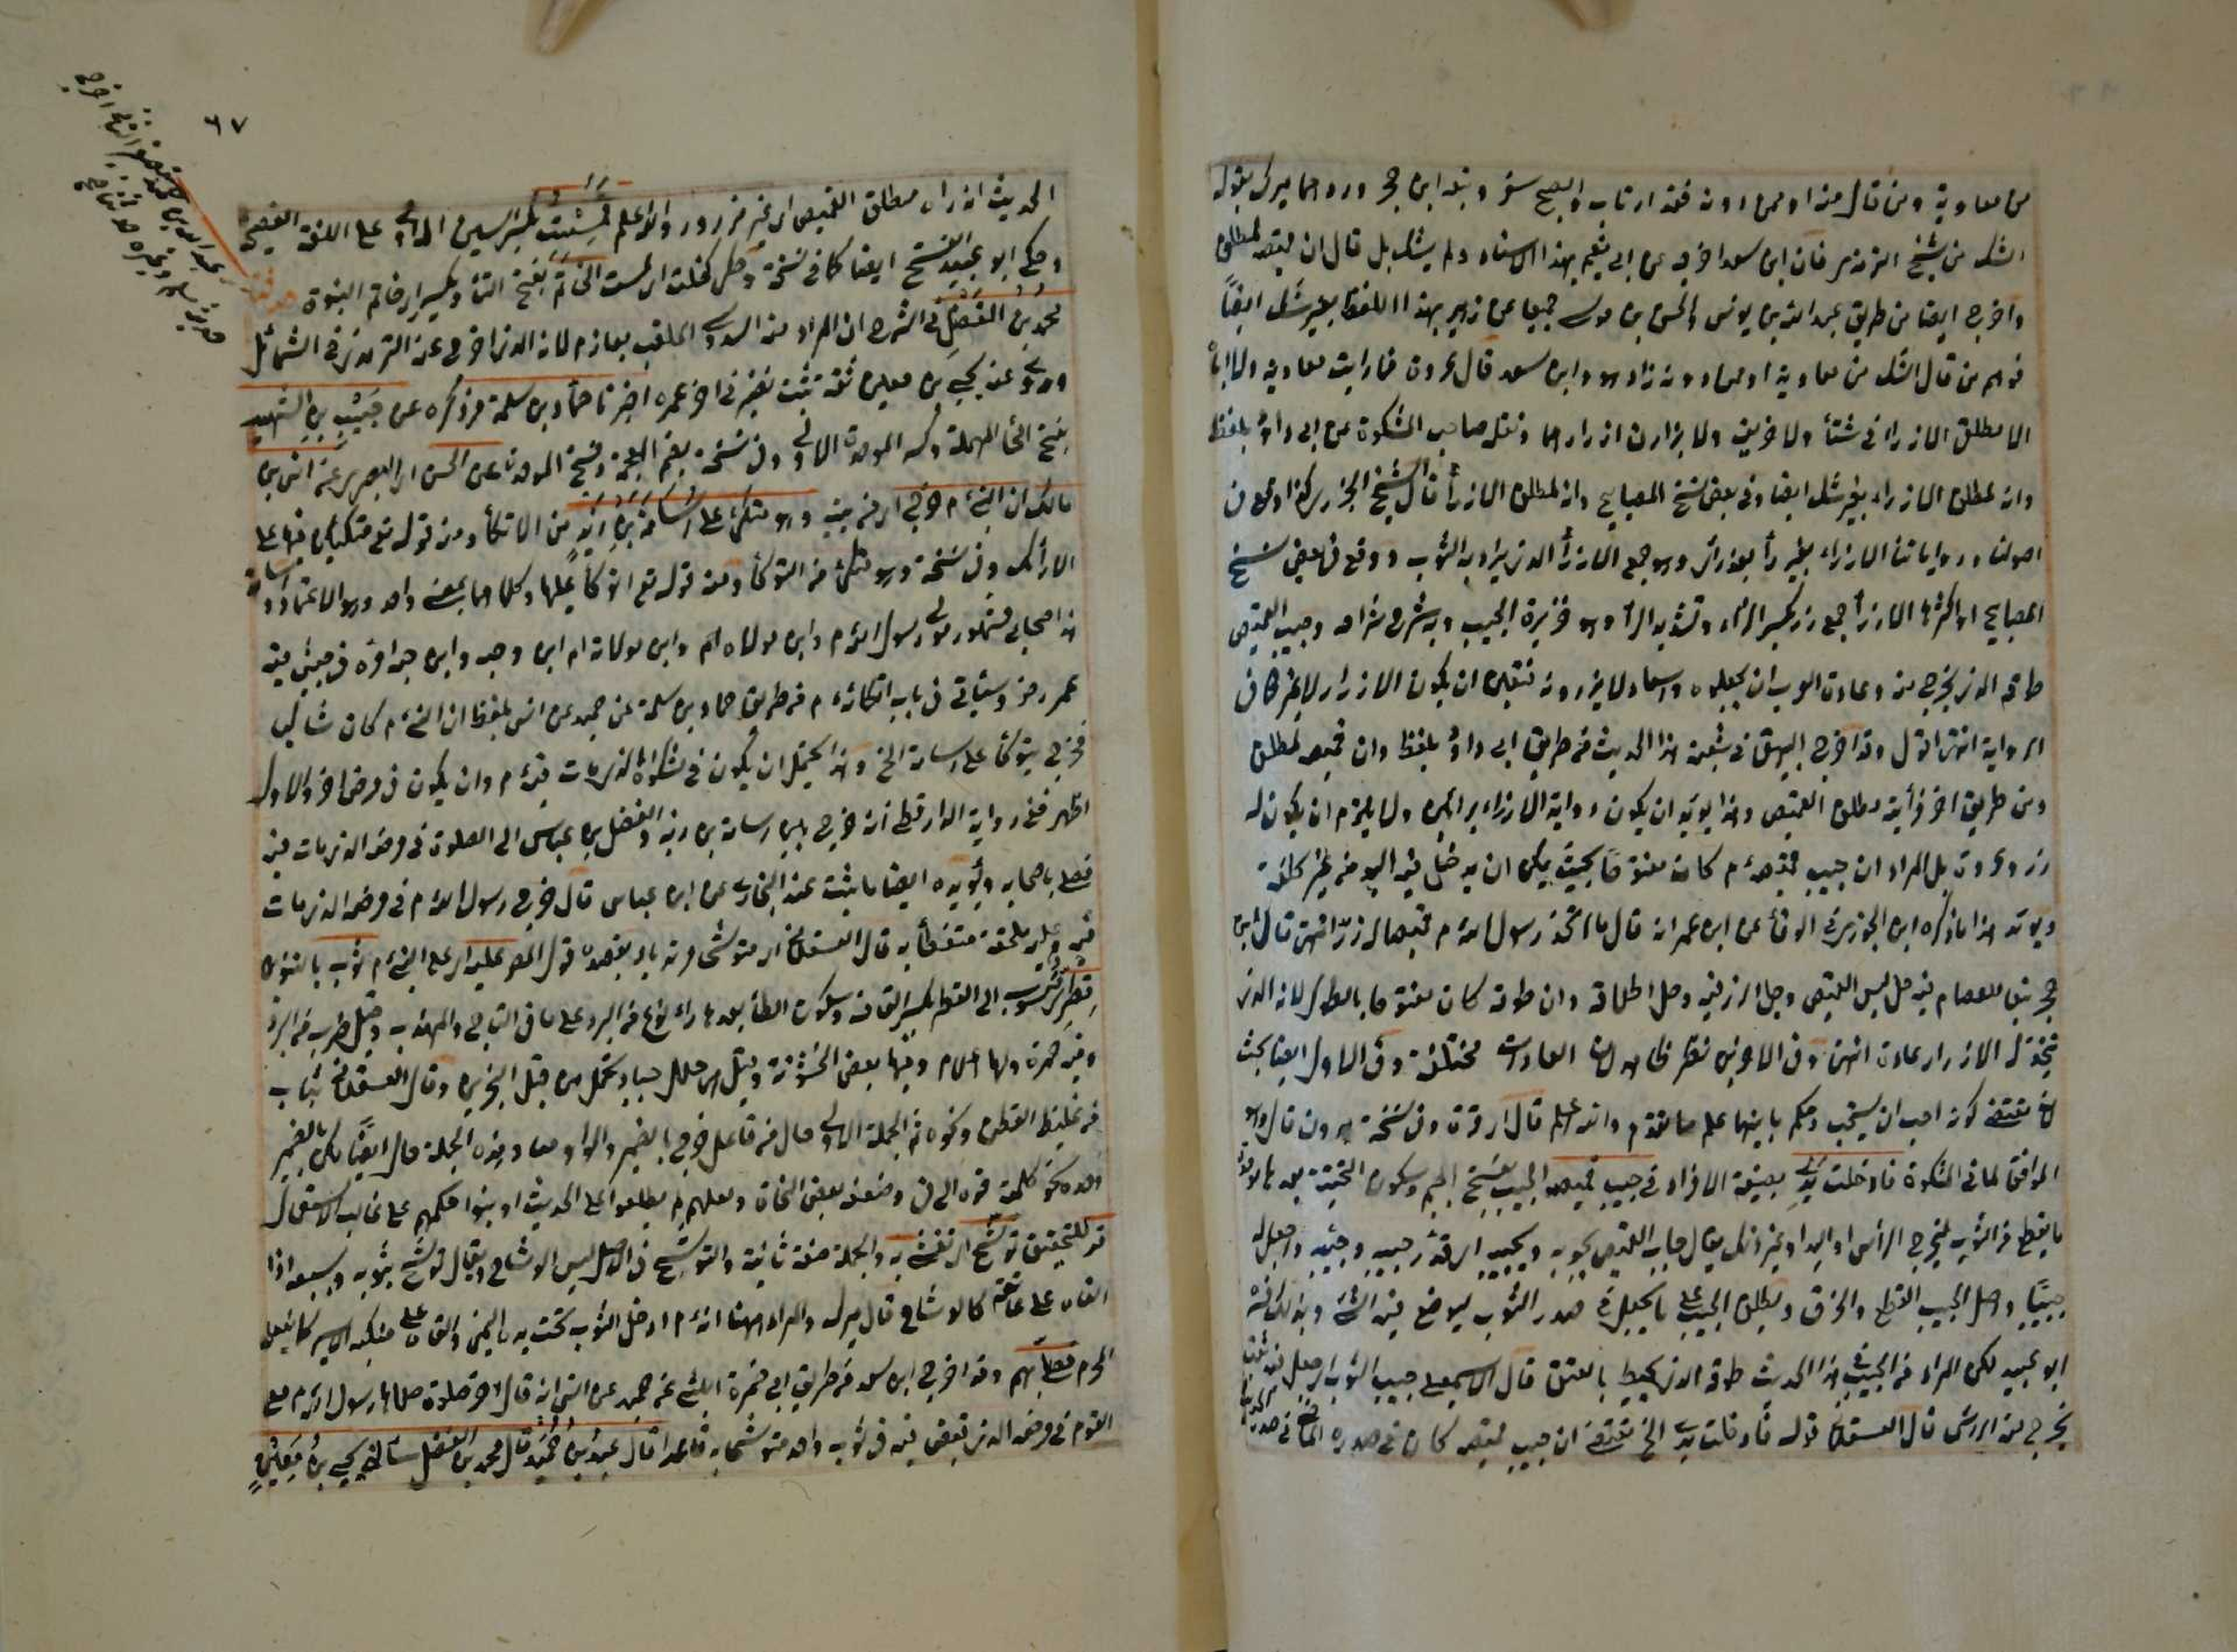 من معاوية ومن قال منه او ممن دونه فقد ارتاب والصحيح سنو وتبعه ابن حجر ورده هما ميرك بقوله
الشك من شيخ الترمذي فان ابن سعد اخرجه عن ابي نعيم بهذا الاسناد ولم يشك بل قال ان قميصه لمطلق
واخرجه ايضا من طريق عبد الله بن يونس والحسن بن موسى جميعا عن زهير بهذا اللفظ بغير شك ايضاً
فوهم من قال الشك من معاوية او ممن دونه زاد وابن سعد قال عروة فما رايت معاوية ولا ابنه
الا مطلق الازرار في شتاء ولا خريف ولا يزران ازرارهما ونقله صاحب المشكوة عن ابي داود بلفظ
وانه لمطلق الازرار بغير شك ايضا وفي بعض نسخ المصابيح وانه لمطلق الازرار قال الشيخ الجزري كذا وقع في
اصولنا ورواياتنا الازراء بغير راء بعد زاء وهو جمع الازرار الذي يراد به الثوب ووقع في بعض نسخ
المصابيح او اكثرها الازرار جمع زر بكسر الزاء وتشديد الراء وهو خرزة الجيب وبه شرح شراحه وجيب القميص
طوقه الذي يخرج منه وعادة العرب ان يجعلوه واسعا ولا يزرونه فتعين ان يكون الازرار لا غير كما في
الرواية انتهى اقول وقد اخرج البيهقي في شعبه هذا الحديث من طريق ابي داود بلفظ وان قميصه لمطلق
ومن طريق اخر فرأيته مطلق القميص وهذا يؤيد ان يكون رواية الازرار برائين ولا يلزم ان يكون له
زر وعروة بل المراد ان جيب قميصه م كان مفتوحا بحيث يمكن ان يدخل فيه اليد من غير كلفة
ويؤيد هذا ما ذكره ابن الجوزي في الوفاء عن ابن عمر انه قال ما اتخذ رسول الله م قميصا له زر انتهى قال ابن
حجر تبعا للعصام فيه حل لبس القميص وحل الزر فيه وحل اطلاقه وان طوقه كان مفتوحا بالطول لانه الذي
يتخذ له الازرار عادة انتهى وفي الاخرين نظر ظاهر لان العادات مختلفة وفي الاول ايضا بحث
لان مقتضى كونه احب ان يستحب وحكم ما بينهما علم مما تقدم والله اعلم قال اي قرة وفي نسخة بدون قال وهو
الموافق لما في المشكوة فادخلت يدي بصيغة الافراد في جيب قميصه الجيب بفتح الجيم وسكون التحتية بعدها موحدة
ما يقطع من الثوب ليخرج الرأس او اليد او غير ذلك يقال جاب القميص يجوبه ويجيبه اي قور جيبه وجيبه اي جعل له
جيبًا واصل الجيب القطع والخرق ويطلق الجيب على ما يجعل في صدر الثوب ليوضع فيه الشئ وبذلك فسره
ابو عبيد لكن المراد من الجيب في هذا الحديث طوقه الذي يحيط بالعنق قال الاسمعيلي جيب الثوب اي جعل فيه ثقب
يخرج منه الرأس قال العسقلاني قوله فادخلت يدي الخ يقتضي ان جيب قميصه كان في صدره لما في صدر الحديث
٦٧
الحديث انه راه مطلق القميص اي غير مزرور والله اعلم فمسست بكسر السين الاولى على اللغة الفصيحة
وحكي ابو عبيد الفتح ايضا كما في نسخة وحكي كظلت اي لمست الخاتم بفتح التاء وبكسر اي خاتم النبوة حدثنا
محمد بن الفضل في الشرح ان المراد منه السدوسي الملقب بعارم لانه الذي اخرج عنه الترمذي في الشمائل
وروى عنه يحيى بن معين ثقة ثبت تغير في اخر عمره اخبرنا حماد بن سلمة مر ذكره عن حبيب بن الشهيد
بفتح الحاء المهملة وكسر الموحدة الاولى وفي نسخة بضم المعجمة وفتح الموحدة عن الحسن اي البصري عن انس بن
مالك ان النبي م خرج اي من بيته وهو متكئ على اسامة بن زيد من الاتكاء ومنه قوله تع متكئين فيها على
الارائك وفي نسخة وهو متوكئ من التوكأ ومنه قوله تع اتوكأ عليها وكلاهما بمعنى واحد وهو الاعتماد واسامة
هذا صحابي مشهور مولى رسول الله م وابن مولاه وابن مولاته ام ايمن وحبه وابن حبه امره في جيش فيه
عمر رضي وسيأتي في باب اتكائه م من طريق حماد بن سلمة عن حميد عن انس بلفظ ان النبي م كان شاكيا
فخرج يتوكأ على اسامة الخ وهذا يحتمل ان يكون في شكواه الذي مات فيه م وان يكون في مرض اخر والاول
اظهر ففي رواية الدارقطني انه خرج بين اسامة بن زيد والفضل بن عباس الى الصلوة في مرضه الذي مات فيه
فصلى باصحابه ويؤيده ايضا ما ثبت عند البخاري عن ابن عباس قال خرج رسول الله م في مرضه الذي مات
فيه وعليه ملحفة متعطفا بها قال العسقلاني اي متوشحا مرتديا ويعضده قول المص عليه اي على النبي م ثوب بالتنوين
قطري منسوب الى القطر بكسر القاف وسكون الطاء بعدها راء نوع من البرد على ما في التاج والمهذب وقيل ضرب من البرد
وفيه حمرة ولها اعلام وفيها بعض الخشونة وقيل حلل جياد تحمل من قبل البحرين وقال العسقلاني ثياب
من غليظ القطن ونحوه ثم الجملة الاولى حال من فاعل خرج بالضمير والواو معا وهذه الجملة حال ايضا لكن بالضمير
وحده نحو كلمته فوه الى في وضعفه بعض النحاة ولعلهم لم يطلعوا على الحديث او بنوا حكمهم على غالب الاستعمال
قد للتحقيق توشح اي تغشى به والجملة صفة ثانية والتوشح في الاصل لبس الوشاح ويقال توشح بثوبه وبسيفه اذا
القاه على عاتقه كالوشاح قال ميرك والمراد ههنا انه م ادخل الثوب تحت يده اليمنى والقاه على منكبه الايسر كما يفعله
المحرم فصلى بهم وقد اخرج ابن سعد من طريق ابي ضمرة الليثي عن حميد عن انس انه قال اخر صلوة صلاها رسول الله م مع
القوم في مرضه الذي قبض فيه في ثوب واحد متوشحا به قاعدا قال عبد بن حميد قال محمد بن الفضل سألني يحيى بن معين